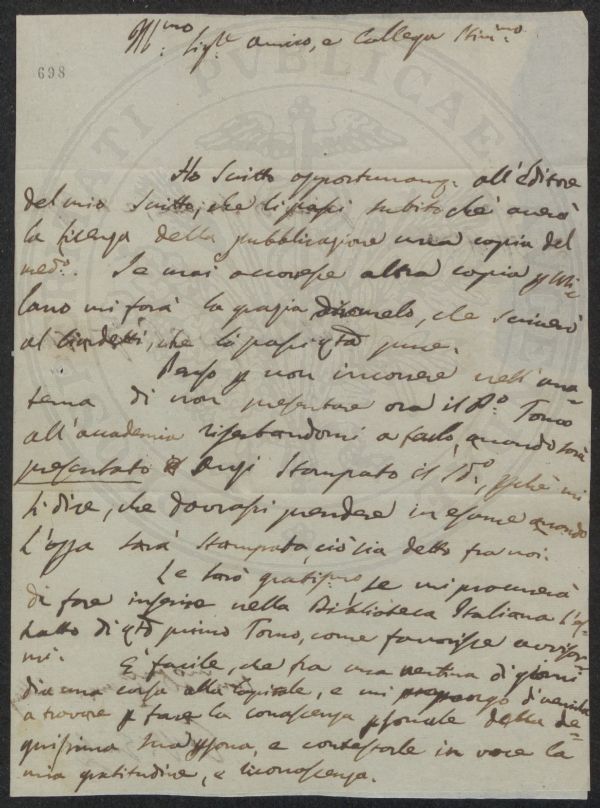 Sig.re amico, e Collega
698
Ho scritto all'Editore
del mio scritto, che li passi subito che averà
la licenza della pubblicazione una copia del
med.o. Se mai altra copia p Mi=
lano mi farà la grazia dirmelo, che scriverò
al che la passi pure.
Penso p non incorrere nell'ana=
tema di non presentare ora il P.o Tomo
all'accademia riserbandomi a farlo, quando sarà
presentato anzi stampato il 2do, mi
si dice, che dovrassi prendere in esame quando
l'opa sarà stampata, ciò sia detto fra noi.
Le sarò gratis.mo, se mi procurerà
di fare inserire nella Biblioteca Italiana l'es=
tratto di qto primo Tomo, come
mi.
È facile, che fra una ventina di giorni
dia una corsa alla Capitale, e mi propongo di venirla
a trovare p fare la conoscenza psonale della de=
gnissima sua psona, e contestarle in voce la
mia gratitudine, e riconoscenza.
PUBLICAE